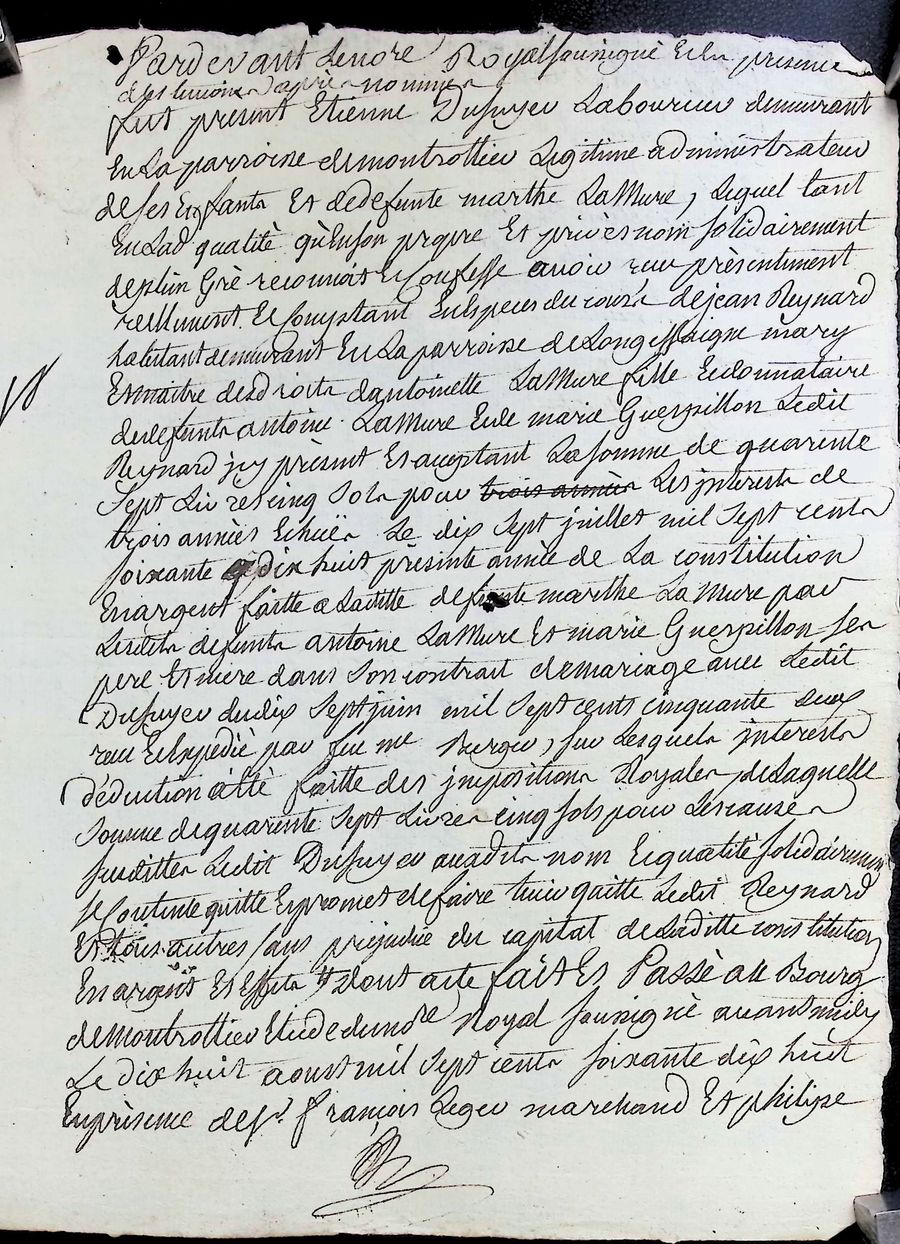 Pardevant Lenore Royal sousigné Et En presence
des temoins après nommés
fut présent Etienne Dufuyer Laboureur demeurant
En La parroisse de montrottier Legitime administrateur
de ses Enfants Et de defunte marthe La Mure, Lequel tant
En Lad qualité qu'En son propre Et privé nom solidairement
de plein Gré reconnoit Et Confesse avoir reçu présentement
reellement Et Comptant En Especes du cours de jean Reynard
habitant demeurant En La parroisse de Longessaigne mary
Et maitre des droits d'antoinette La Mure fille Et donnataire
de defunts antoine La Mure Et de marie Guerpillon Ledit
Reynard jcy présent Et acceptant La somme de quarente
Sept Livres cinq Sols pour trois années Les jnterests de
trois années Echuës Le dix Sept juillet mil Sept cents
soixante dix huit présente année de La constitution
En argent faitte a Laditte defunte marthe La Mure par
Lesdits defunts antoine La Mure Et marie Guerpillon ses
pere Et mere dans Son contrat de mariage avec Ledit
Dufuyer du dix Sept juin mil Sept cents cinquante deux
reçu Et Expedié par feu me Burger, sur Lesquels jnterests
déduction à été faitte des jmpositions Royales, de Laquelle
Somme de quarente Sept Livres cinq sols pour Les causes
susdittes Ledit Dufuyer auxdits nom Et qualité solidairement
se Contente quitte Et promet de faire tenir quitte Ledit Reynard
Et tous autres sans prejudice du capital de Laditte constitution
En argent Et Effets dont acte fait Et Passé au Bourg
de Montrottier Etude du nore Royal sousigné avant midy
Le dix huit aoust mil Sept cents soixante dix huit
En présence de sr. françois Leger marchand Et philipe